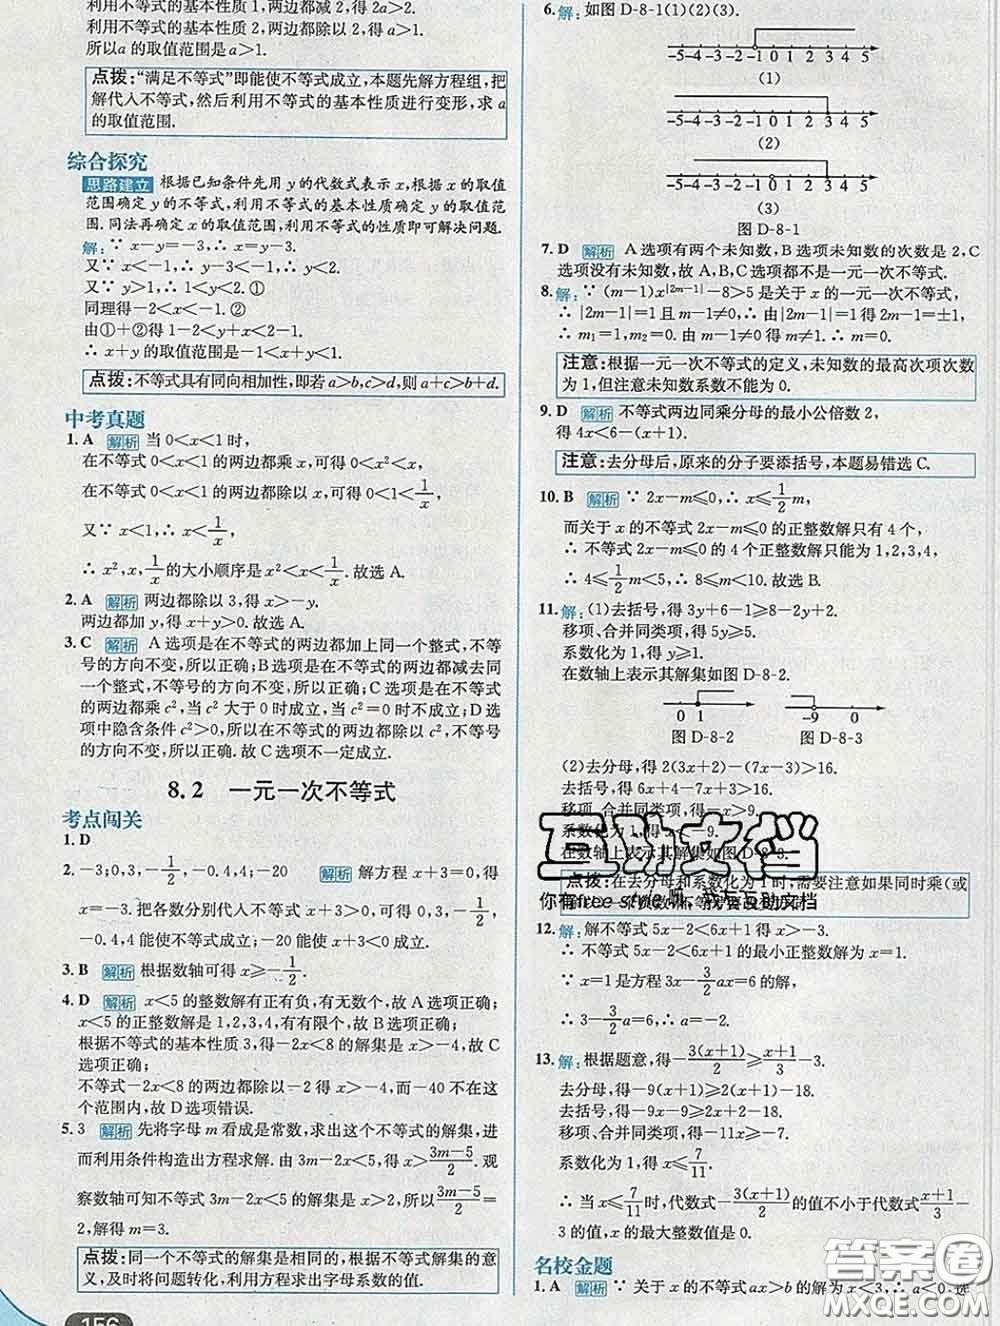 利用不等式的基本性质 1,两边都减 2,得 2a>2.
利用不等式的基本性质 2,两边都除以 2,得 a>1.
所以a 的取值范围是 a>1.
点拨:“满足不等式”即能使不等式成立,本题先解方程组,把
解代人不等式,然后利用不等式的基本性质进行变形,求 a
的取值范围.
综合探究
思路建立 根据已知条件先用 y 的代数式表示 x,根据 x 的取值
范围确定 y 的不等式,利用不等式的基本性质确定 y 的取值范
围.同法再确定 x 的取值范围,利用不等式的性质即可解决问题.
解:∵ x-y=-3,∴ x=y-3.
又∵ x<-1,∴ y-3<-1,∴ y<2.
又∵ y>1,∴ 1<y<2.①
同理得-2<x<-1.②
由①+②得 1-2<y+x<2-1.
∴ x+y 的取值范围是-1<x+y<1.
点拨:不等式具有同向相加性,即若 a>b,c>d,则 a+c>b+d.
中考真题
1.A 解析 当 0<x<1 时,
在不等式 0<x<1 的两边都乘 x,可得 0<x²<x.
在不等式 0<x<1 的两边都除以 x,可得 0<1<1/x,
又∵ x<1,∴ x<1/x.
∴ x²,x,1/x的大小顺序是 x²<x<1/x.故选 A.
2.A 解析 两边都除以 3,得 x>-y.
两边都加 y,得 x+y>0.故选 A.
3.C 解析 A 选项是在不等式的两边都加上同一个整式,不等
号的方向不变,所以正确;B 选项是在不等式的两边都减去同
一个整式,不等号的方向不变,所以正确;C 选项是在不等式
的两边都乘 c²,当 c 大于 0 时成立,当 c=0 时不成立;D 选
项中隐含条件 c²>0,所以在不等式的两边都除以 c²,不等号
的方向不变,所以正确.故 C 选项不一定成立.
8.2 一元一次不等式
考点闯关
1.D
2.-3;0,3,-1/2,-0.4,4;-20 解析 解方程 x+3=0,得
x=-3.把各数分别代人不等式 x+3>0,可得 0,3,-1/2,
-0.4,4 能使不等式成立;-20 能使 x+3<0 成立.
3.B 解析 根据数轴可得 x≥-1/2.
4.D 解析 x<5 的整数解有正有负,有无数个,故 A 选项正确;
x<5 的正整数解是 1,2,3,4,有有限个,故 B 选项正确;
根据不等式的基本性质 3,得-2x<8 的解集是 x>-4,故 C
选项正确;
不等式-2x<8 的两边都除以-2 得 x>-4,而-40 不在这
个范围内,故 D 选项错误.
5.3 解析 先将字母 m 看成是常数,求出这个不等式的解集,进
而利用条件构造出方程求解.由 3m-2x<5,得 x>(3m-5)/2.观
察数轴可知不等式 3m-2x<5 的解集是 x>2,所以(3m-5)/2=
2,解得 m=3.
点拨:同一个不等式的解集是相同的,根据不等式解集的意
义,及时将问题转化,利用方程求出字母系数的值.
156
6.解:如图 D-8-1(1)(2)(3).
-5-4-3-2-1 0 1 2 3 4 5
(1)
-5-4-3-2-1 0 1 2 3 4 5
(2)
-5-4-3-2-1 0 1 2 3 4 5
(3)
图 D-8-1
7.D 解析 A 选项有两个未知数,B 选项未知数的次数是 2,C
选项没有未知数,故 A、B、C 选项都不是一元一次不等式.
8.解:∵ (m-1)x^|2m-1|-8>5 是关于 x 的一元一次不等式,
∴ |2m-1|=1 且 m-1≠0,∴ 由|2m-1|=1得 2m-1=±1,
∴ m₁=1,m₂=0.由 m-1≠0 得 m≠1,∴ m=0.
注意:根据一元一次不等式的定义,未知数的最高次项次数
为 1,但注意未知数系数不能为 0.
9.D 解析 不等式两边同乘分母的最小公倍数 2,
得 4x<6-(x+1).
注意:去分母后,原来的分子要添括号,本题易错选 C.
10.B 解析 ∵ 2x-m≤0,∴ x≤1/2m,
而关于 x 的不等式 2x-m≤0 的正整数解只有 4 个,
∴ 不等式 2x-m≤0 的 4 个正整数解只能为 1,2,3,4,
∴ 4≤1/2m<5,∴ 8≤m<10.故选 B.
11.解:(1)去括号,得 3y+6-1≥8-2y+2.
移项、合并同类项,得 5y≥5.
系数化为 1,得 y≥1.
在数轴上表示其解集如图 D-8-2.
0 1
图 D-8-2
-9 0
图 D-8-3
(2)去分母,得 2(3x+2)-(7x-3)>16.
去括号,得 6x+4-7x+3>16.
移项、合并同类项,得-x>9.
系数化为 1,得 x<-9.
在数轴上表示其解集如图 D-8-3.
点拨:在去分母和系数化为 1 时,需要注意如果同时乘(或
互助文档
你有free style吗,我有互助文档
12.解:解不等式 5x-2<6x+1 得 x>-3.
∴ 不等式 5x-2<6x+1 的最小正整数解为 x=1.
∵ x=1 是方程 3x-3/2ax=6 的解,
∴ 3-3/2a=6,∴ a=-2.
13.解:根据题意,得-3(x+1)/2≥(x+1)/3-3.
去分母,得-9(x+1)≥2(x+1)-18.
去括号,得-9x-9≥2x+2-18.
移项、合并同类项,得-11x≥-7.
系数化为 1,得 x≤7/11.
∴ 当 x≤7/11时,代数式-3(x+1)/2的值不小于代数式(x+1)/3-
3 的值,x 的最大整数值是 0.
名校金题
1.A 解析 ∵ 关于 x 的不等式 ax>b 的解为 x<3,∴ a<0,选
答案圈
MXQE.COM